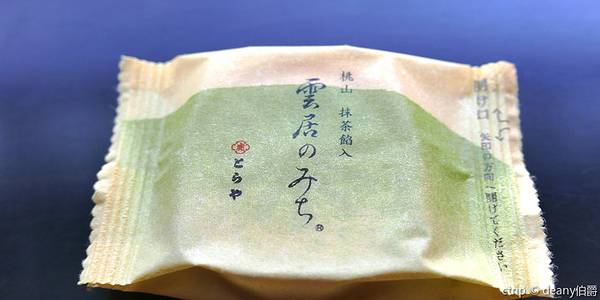 開け口
矢印の方向へ開けてください
桃山 抹茶餡入
雲居のみち®
とらや
ctrip © deany伯爵